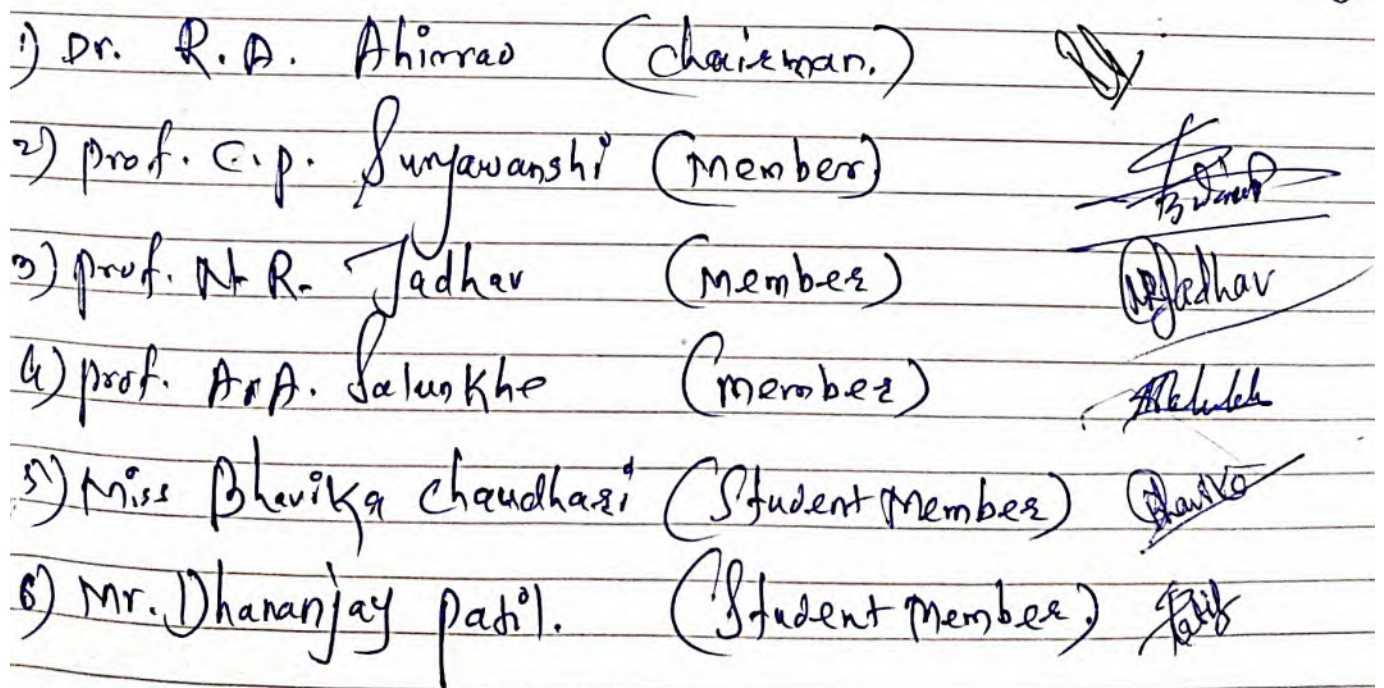 1) Dr. R. A. Ahirrao (Chairman.)
2) prof. C. p. Suryawanshi (Member)
3) prof. N. R. Jadhav (Member) NRJadhav
4) prof. A. A. Salunkhe (member)
5) Miss Bhavika Chaudhari (Student Member) Bhavika
6) Mr. Dhananjay Patil. (Student Member.) Patil